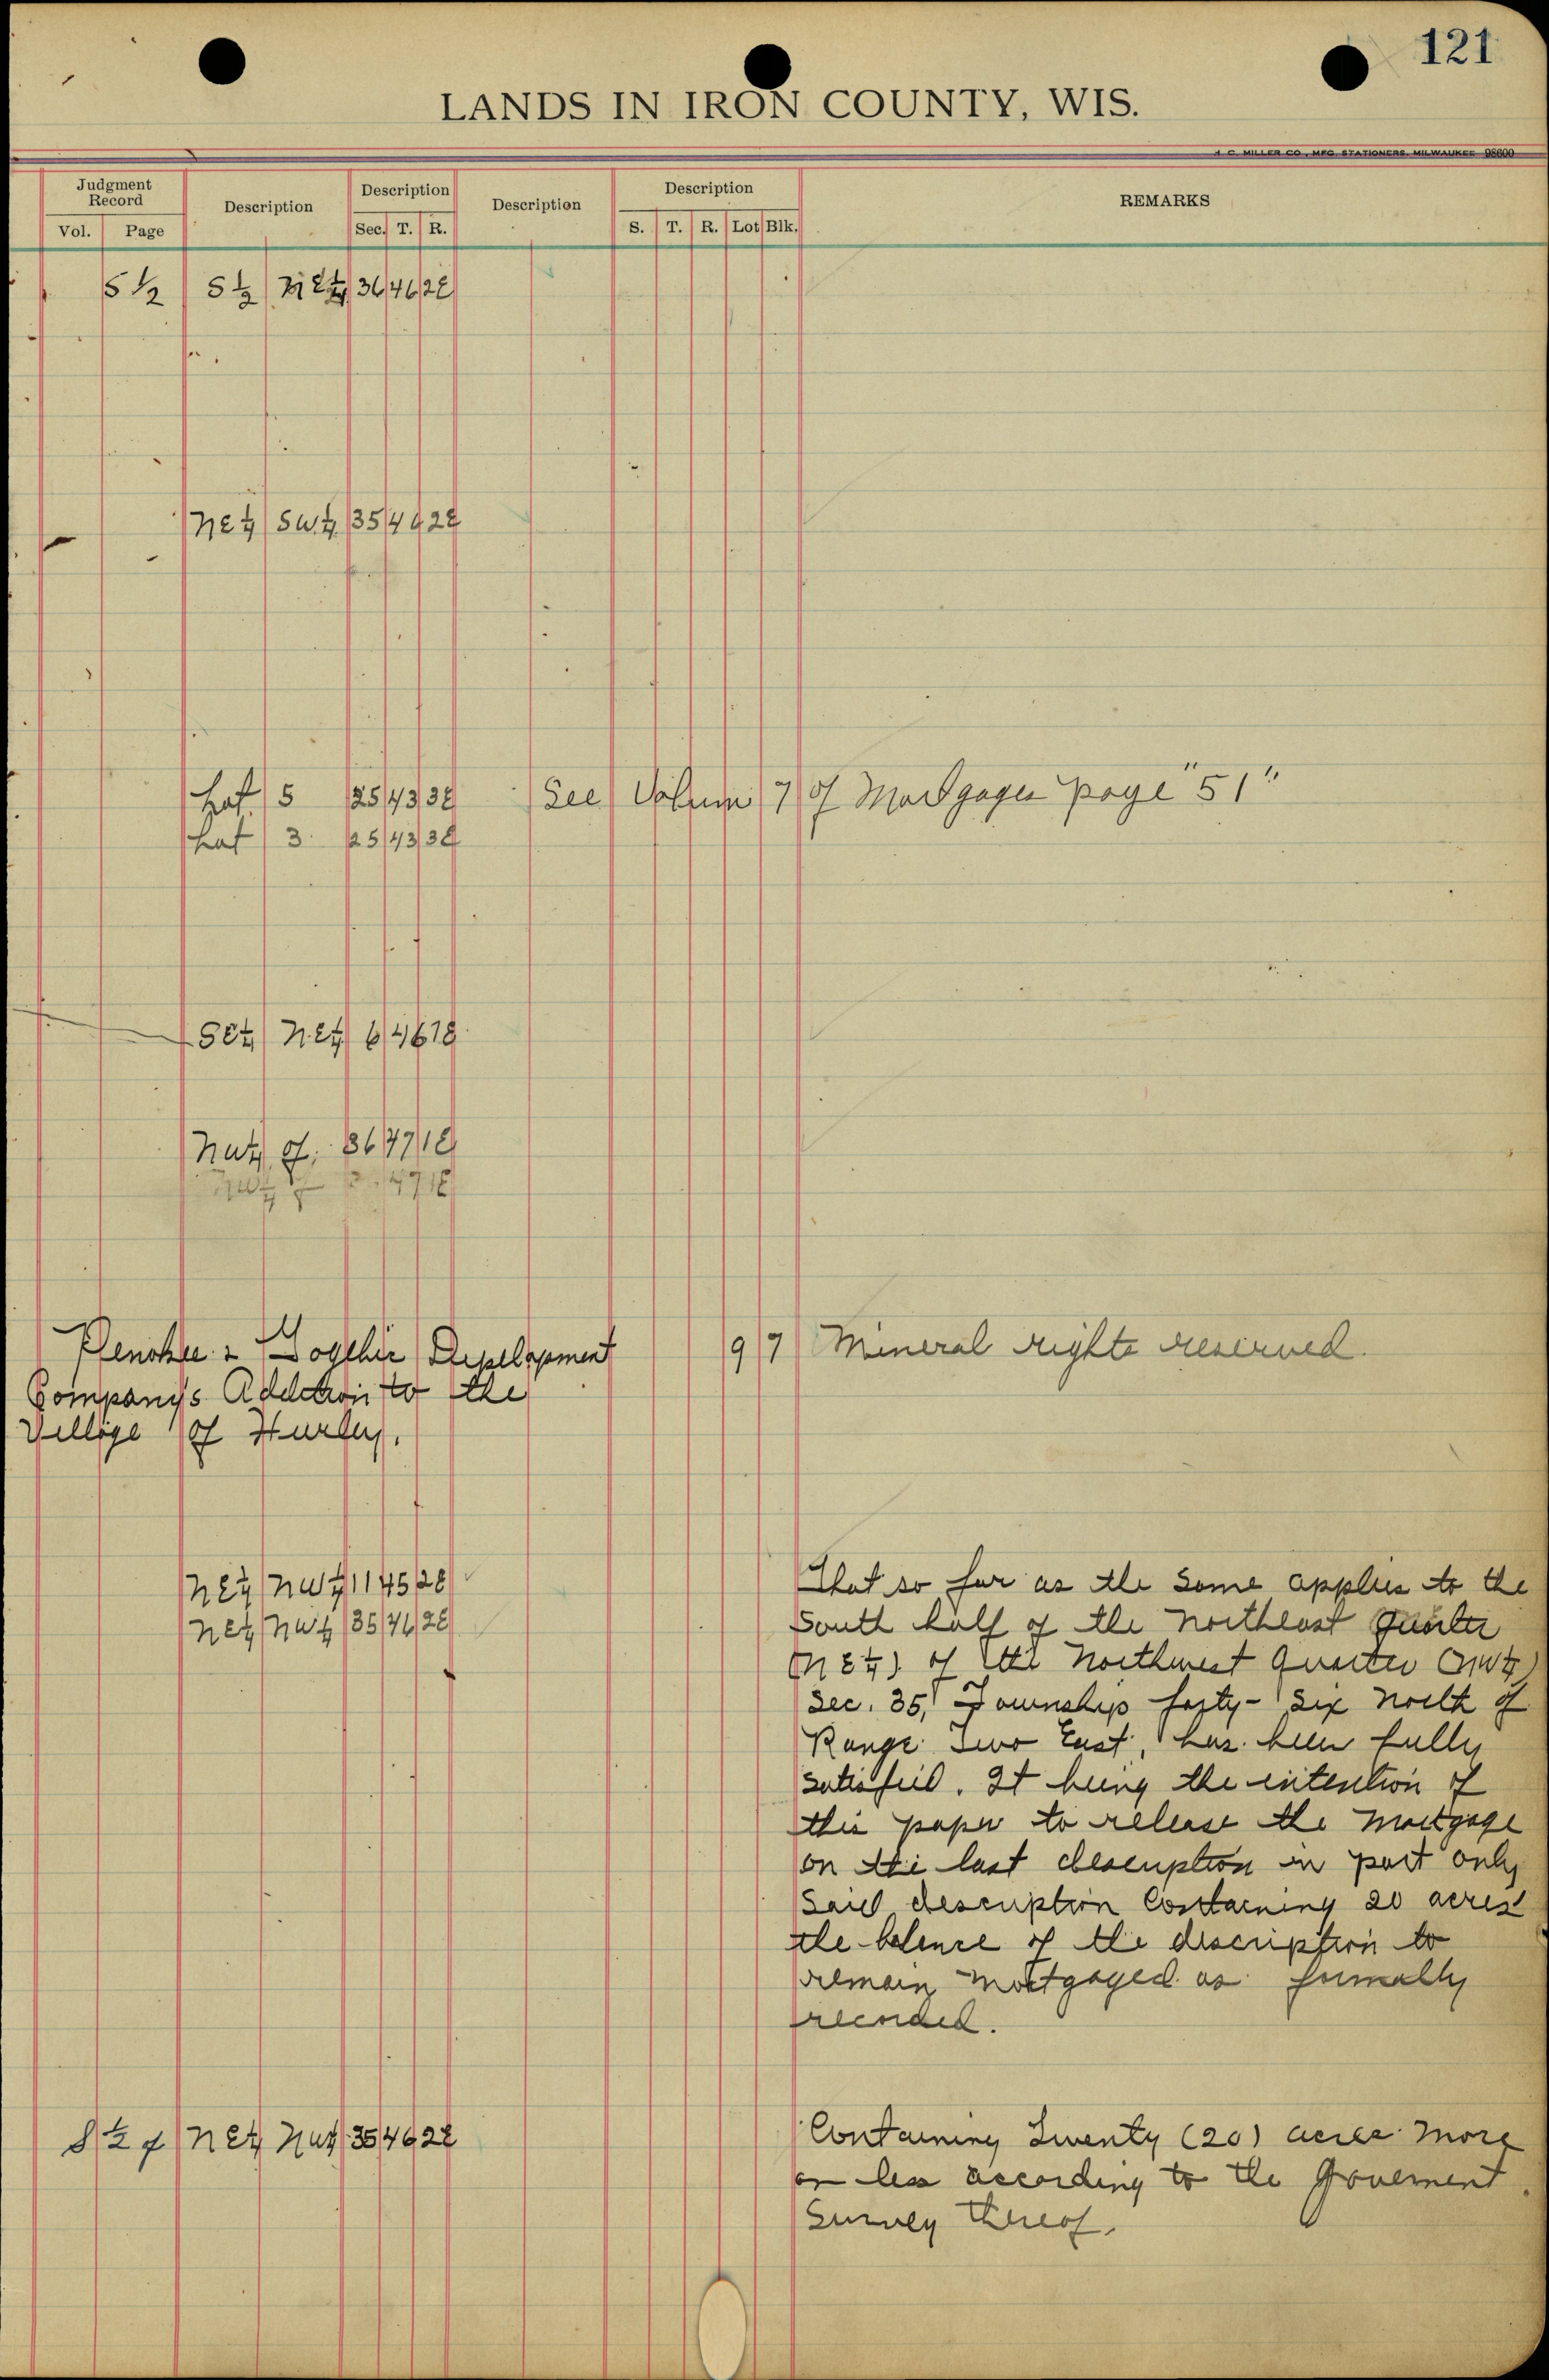 121
LANDS IN IRON COUNTY, WIS.
H. C. MILLER CO., MFG. STATIONERS, MILWAUKEE 98600
Judgment Record Description Description Description Description REMARKS
Vol. Page Sec. T. R. S. T. R. Lot Blk.
S 1/2 S 1/2 NE 1/4 36 46 2E
NE 1/4 SW 1/4 35 46 2E
Lot 5 25 43 3E See Volume 7 of Mortgages page "51"
Lot 3 25 43 3E
SE 1/4 NE 1/4 6 46 1E
NW 1/4 of 36 47 1E
NW 1/4 47 1E
Penokee & Gogebic Development 9 7 Mineral rights reserved.
Company's Addition to the
Village of Hurley.
NE 1/4 NW 1/4 11 45 2E That so far as the same applies to the
NE 1/4 NW 1/4 35 46 2E South half of the Northeast Quarter
(NE 1/4) of the Northwest Quarter (NW 1/4)
Sec. 35, Township forty-six North of
Range Two East, has been fully
satisfied. It being the intention of
this paper to release the Mortgage
on the last description in part only
Said description Containing 20 acres
the balence of the discription to
remain mortgaged as formally
recorded.
S 1/2 of NE 1/4 NW 1/4 35 46 2E Containing Twenty (20) acres more
or less according to the Government
Survey thereof.